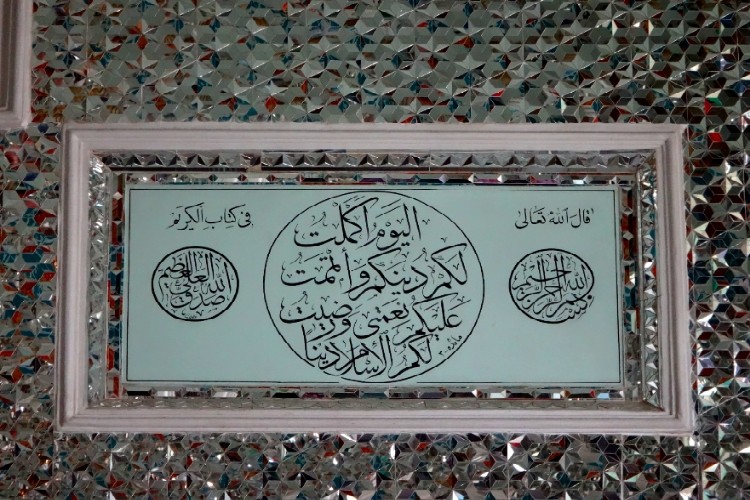 قال الله تعالى
بسم الله الرحمن الرحيم
اليوم اكملت
لكم دينكم واتممت
عليكم نعمتى ورضيت
لكم الاسلام دينا
فى كتاب الكريم
صدق الله العلى العظيم